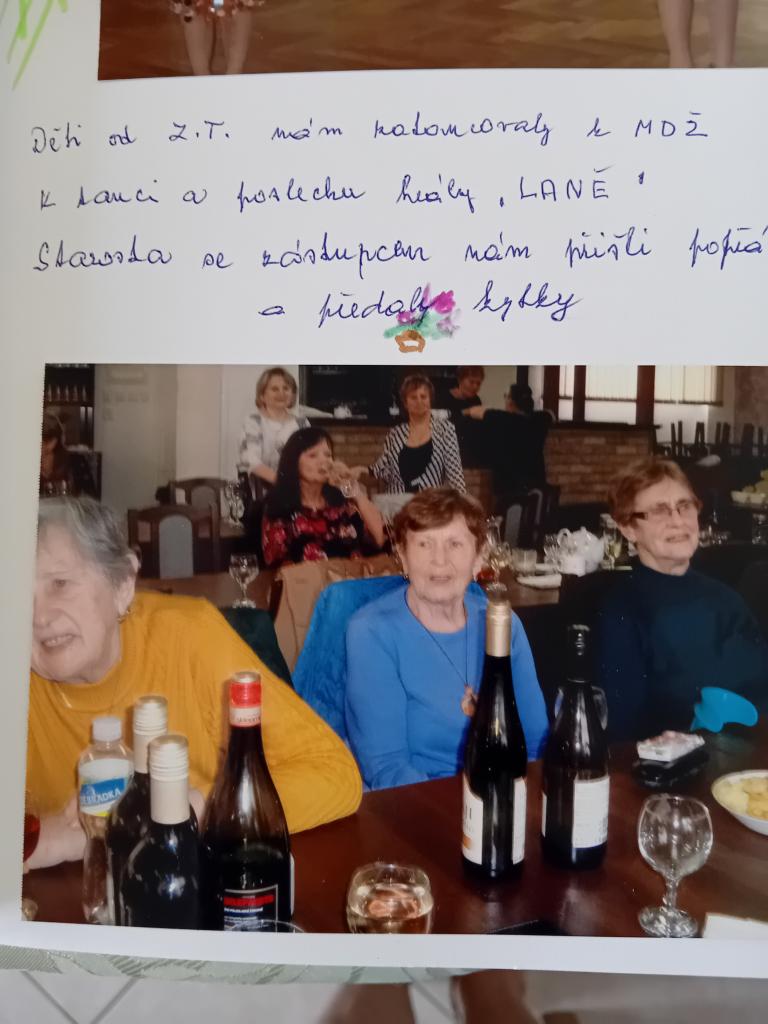 Děti od Z.T. nám zatancovaly k MDŽ
K tanci a poslechu hrály "LANĚ"
Starosta se zástupcem nám přišli popřá
a předaly kytky